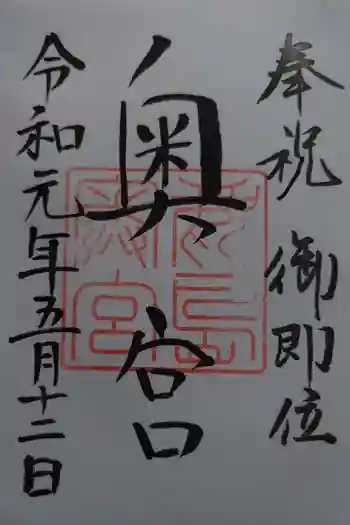 奉祝 御即位
奥宮
令和元年五月十二日
島
奥宮